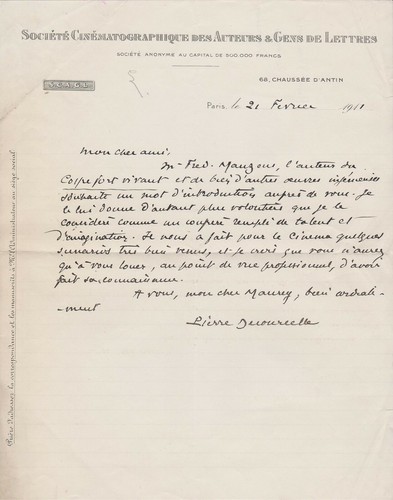 Société Cinématographique des Auteurs & Gens de Lettres
SOCIÉTÉ ANONYME AU CAPITAL DE 500.000 FRANCS
68, CHAUSSÉE D'ANTIN
S.C.A.G.L.
Paris, le 21 Février 1911
Mon cher ami,
Mr Fred. Mauzens, l'auteur du
Coffre fort vivant et de bien d'autres œuvres ingénieuses
souhaite un mot d'introduction auprès de vous. Je
le lui donne d'autant plus volontiers que je le
considère comme un confrère rempli de talent et
d'imagination. Il nous a fait pour le cinéma quelques
scénarios très bien venus, et je crois que vous n'aurez
qu'à vous louer, au point de vue professionnel, d'avoir
fait sa connaissance.
A vous, mon cher Maurey, bien cordiale-
ment
Pierre Decourcelle
Prière d'adresser la correspondance et les manuscrits à M. l'Administrateur au siège social.